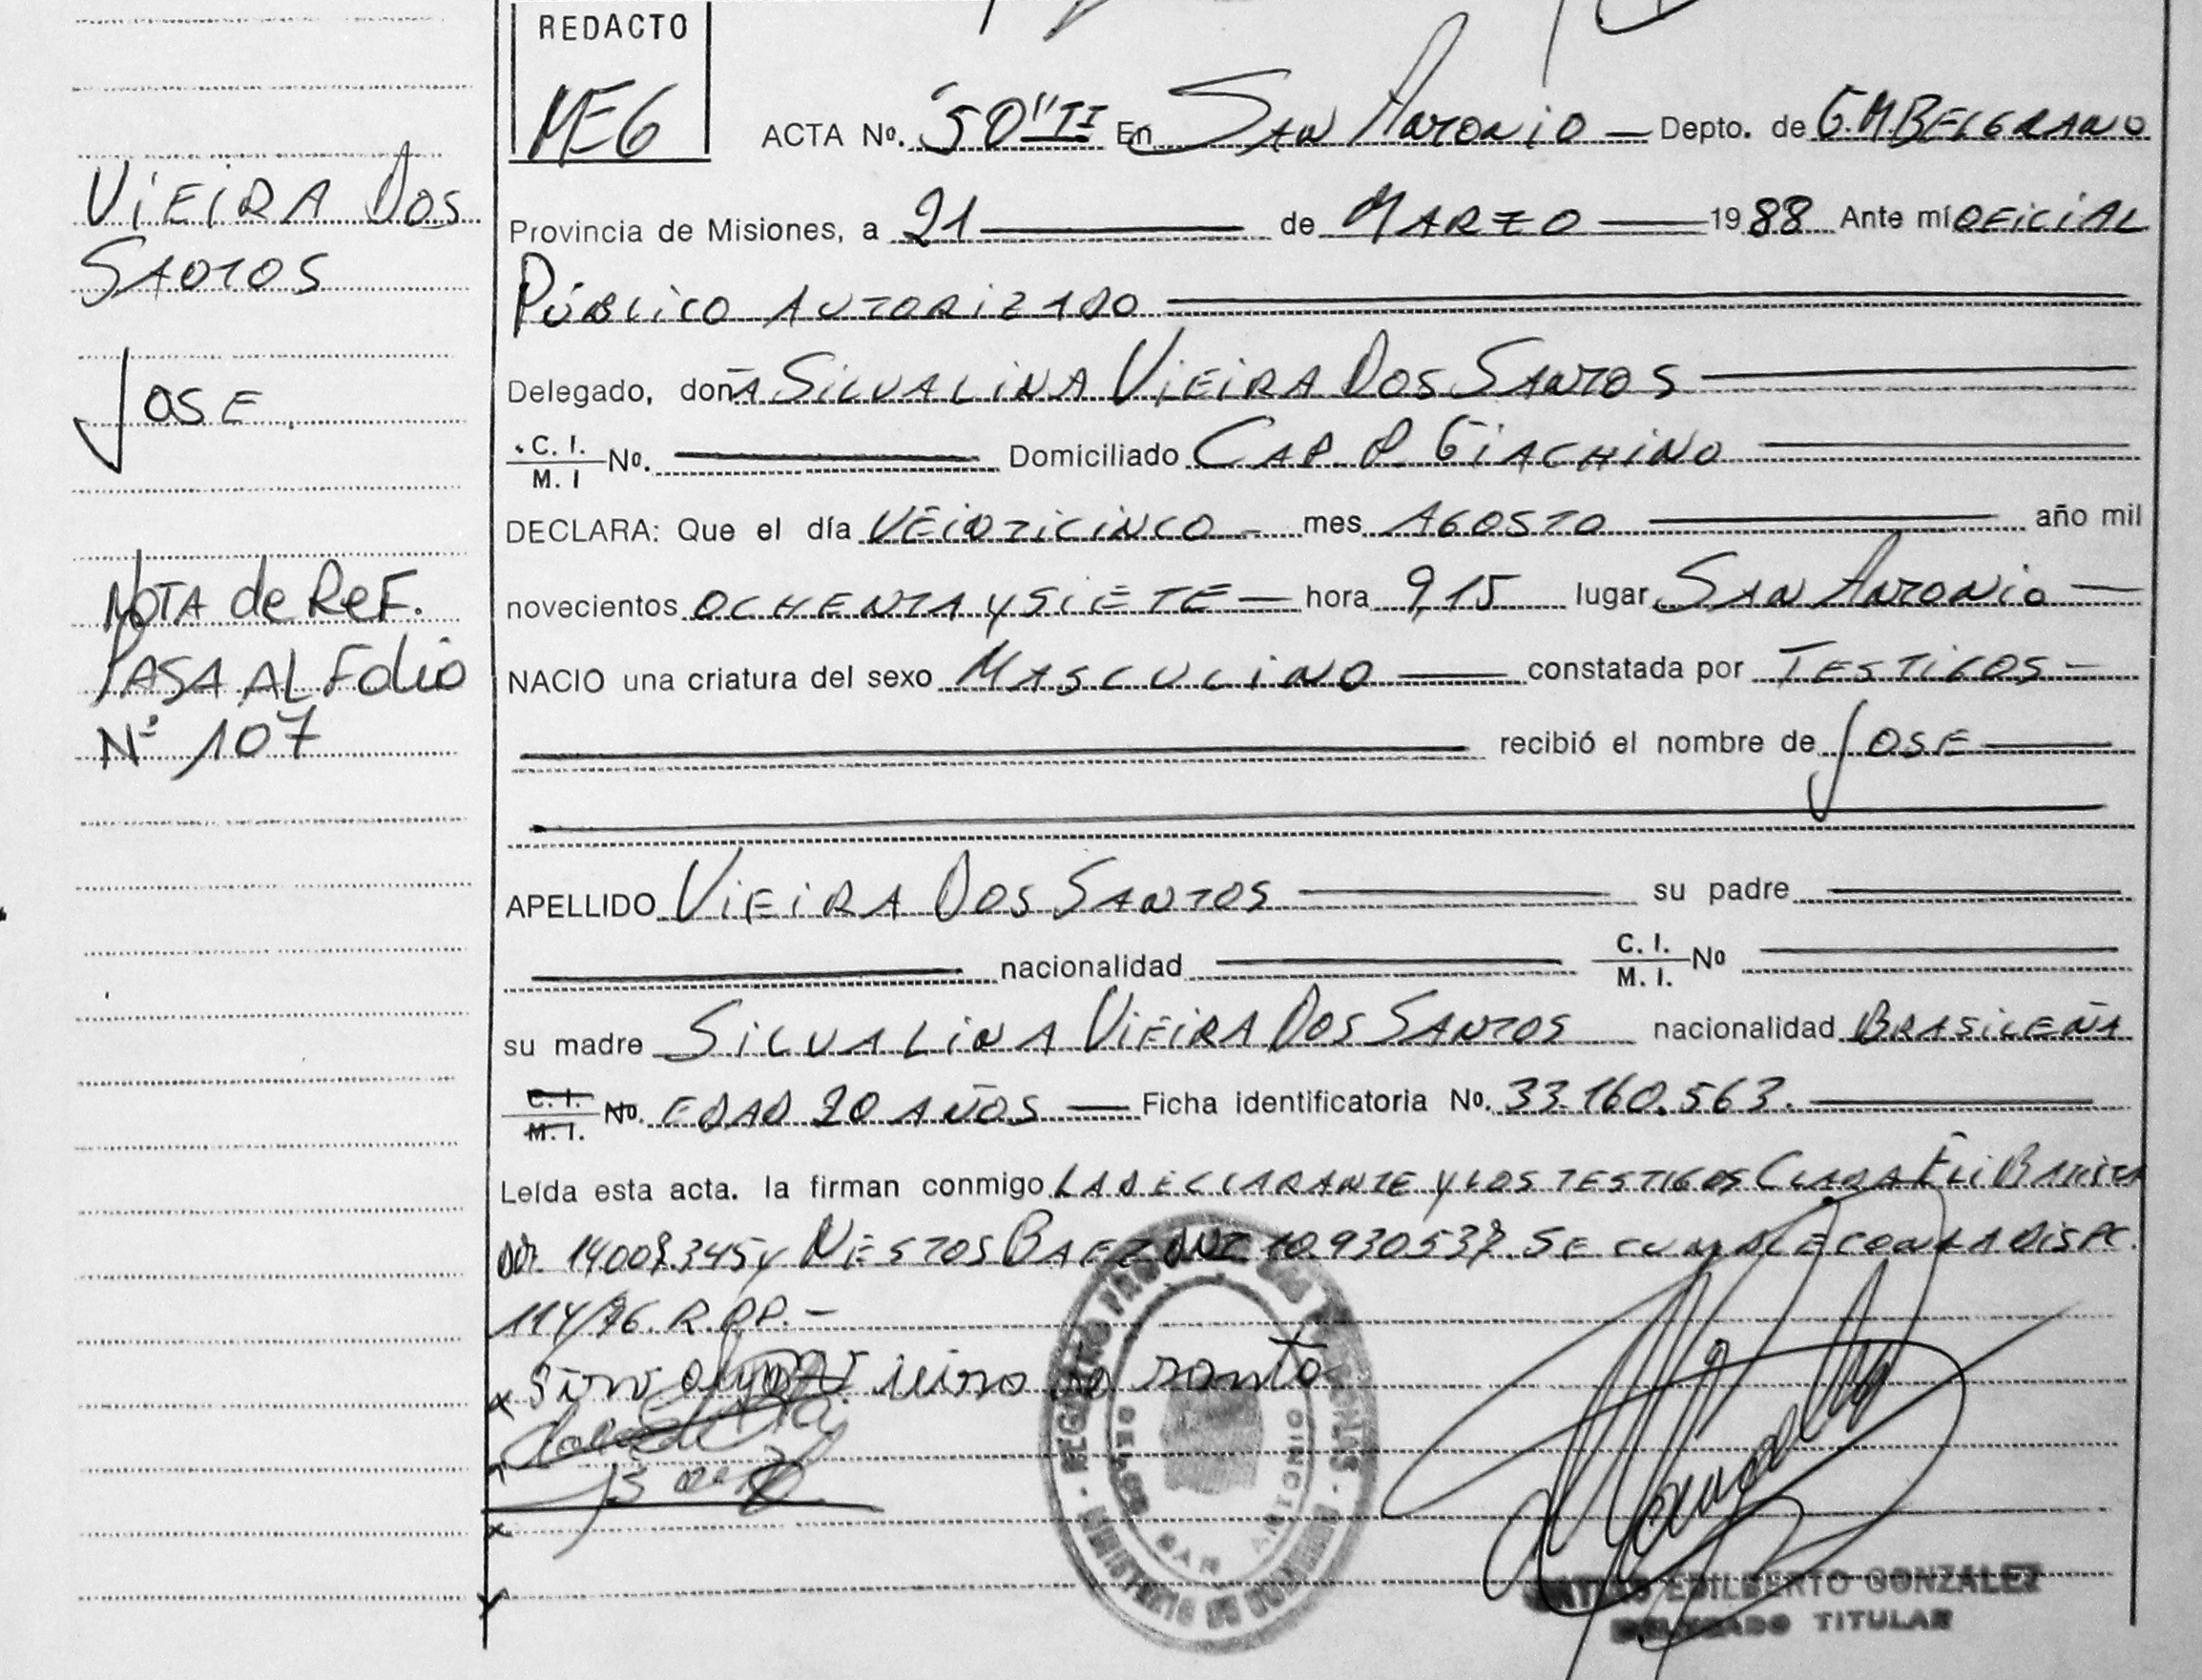 REDACTO
MEG
ACTA Nº. "50" II En SAN ANTONIO — Depto. de G.M BELGRANO
Provincia de Misiones, a 21 de MARZO 1988 Ante mí OFICIAL
PÚBLICO AUTORIZADO
Delegado, doñA SILVALINA VIEIRA DOS SANTOS
C. I. / M. I Nº. Domiciliado CAP. P. GIACHINO
DECLARA: Que el día VEINTICINCO — mes AGOSTO año mil
novecientos OCHENTA Y SIETE — hora 9,15 lugar SAN ANTONIO —
NACIO una criatura del sexo MASCULINO — constatada por TESTIGOS —
recibió el nombre de JOSE
APELLIDO VIEIRA DOS SANTOS su padre
nacionalidad C. I. / M. I. Nº
su madre SILVALINA VIEIRA DOS SANTOS nacionalidad BRASILEÑA
C. I. / M. I. No. EDAD 20 AÑOS — Ficha identificatoria No. 33.160.563.
Leída esta acta. la firman conmigo LA DECLARANTE Y LOS TESTIGOS CLARA
14009.345 y NESTOS BAEZ DNI 10.930537. SE CUMPLE CON LA DISPC.
114/76. R.PP.-
GONZALEZ
DELEGADO TITULAR
VIEIRA DOS
SANTOS
JOSE
NOTA de ReF.
PASA AL Folio
Nº 107